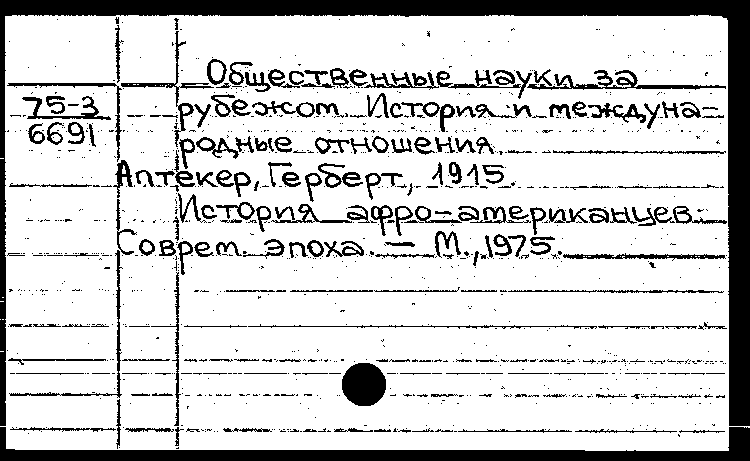 Общественные науки за
75-3
рубежом. История и междуна-
6691
родные отношения.
Аптекер, Герберт, 1915.
История афро-американцев:
Соврем. эпоха. — М., 1975.